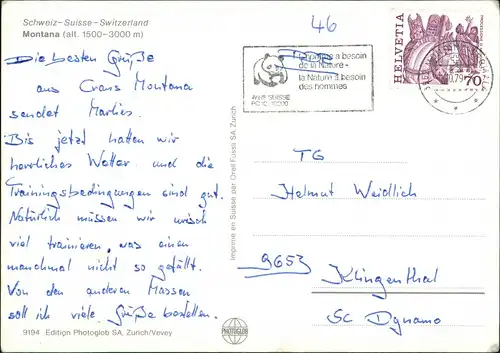 Schweiz-Suisse-Switzerland
Montana (alt. 1500-3000 m)
Die besten Grüße
aus Crans Montana
sendet Marlies.
Bis jetzt hatten wir
herrliches Wetter und die
Trainingsbedingungen sind gut.
Natürlich müssen wir
viel trainieren, was einen
manchmal nicht so gefällt.
Von den anderen Massen
soll ich viele Grüße bestellen.
9194 Edition Photoglob SA, Zurich/Vevey
Imprimé en Suisse par Orell Füssli SA Zurich
PHOTOGLOB
46
L'homme a besoin
de la Nature -
la Nature a besoin
des hommes
WWF SUISSE
HELVETIA
70
TG
Helmut Weidlich
9653
Klingenthal
SC Dynamo